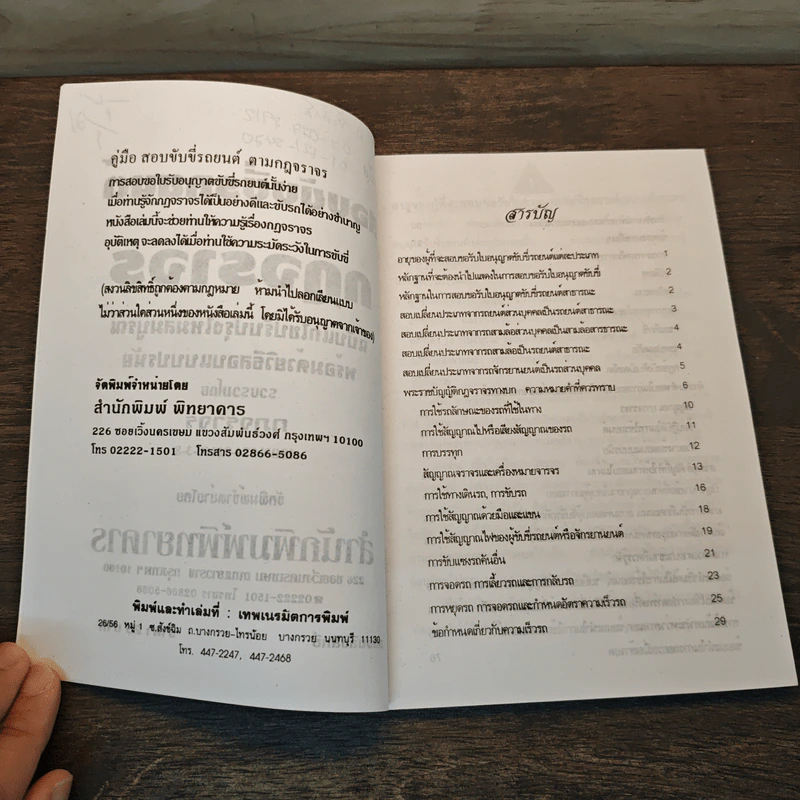 คู่มือ สอบขับขี่รถยนต์ ตามกฎจราจร
การสอบขอใบรับอนุญาตขับขี่รถยนต์นั้นง่าย
เมื่อท่านรู้จักกฎจราจรได้เป็นอย่างดีและขับรถได้อย่างชำนาญ
หนังสือเล่มนี้จะช่วยท่านให้ความรู้เรื่องกฎจราจร
อุบัติเหตุ จะลดลงได้เมื่อท่านใช้ความระมัดระวังในการขับขี่
(สงวนลิขสิทธิ์ถูกต้องตามกฎหมาย ห้ามนำไปลอกเลียนแบบ
ไม่ว่าส่วนใดส่วนหนึ่งของหนังสือเล่มนี้ โดยมิได้รับอนุญาตจากเจ้าของ)
จัดพิมพ์จำหน่ายโดย
สำนักพิมพ์ พิทยาคาร
226 ซอยเวิ้งนครเขษม แขวงสัมพันธ์วงศ์ กรุงเทพฯ 10100
โทร 02222-1501 โทรสาร 02866-5086
พิมพ์และทำเล่มที่ : เทพเนรมิตการพิมพ์
26/56 หมู่ 1 ซ.สังข์ฉิม ถ.บางกรวย-ไทรน้อย บางกรวย นนทบุรี 11130
โทร. 447-2247, 447-2468
สารบัญ
อายุของผู้ที่จะสอบขอรับใบอนุญาตขับขี่รถยนต์แต่ละประเภท 1
หลักฐานที่จะต้องนำไปแสดงในการสอบขอรับใบอนุญาตขับขี่ 2
หลักฐานในการสอบขอรับใบอนุญาตขับขี่รถยนต์สาธารณะ 2
สอบเปลี่ยนประเภทจากรถยนต์ส่วนบุคคลเป็นรถยนต์สาธารณะ 3
สอบเปลี่ยนประเภทจากรถสามล้อส่วนบุคคลเป็นสามล้อสาธารณะ 4
สอบเปลี่ยนประเภทจากรถสามล้อเป็นรถยนต์สาธารณะ 4
สอบเปลี่ยนประเภทจากรถจักรยานยนต์เป็นรถส่วนบุคคล 5
พระราชบัญญัติกฎจราจรทางบก ความหมายคำที่ควรทราบ 6
การใช้รถลักษณะของรถที่ใช้ในทาง 10
การใช้สัญญาณไฟหรือเสียงสัญญาณของรถ 11
การบรรทุก 12
สัญญาณจราจรและเครื่องหมายจราจร 13
การใช้ทางเดินรถ, การขับรถ 16
การใช้สัญญาณด้วยมือและแขน 18
การใช้สัญญาณไฟของผู้ขับขี่รถยนต์หรือจักรยานยนต์ 19
การขับแซงรถคันอื่น 21
การจอดรถ การเลี้ยวรถและการกลับรถ 23
การหยุดรถ การจอดรถและกำหนดอัตราความเร็วรถ 25
ข้อกำหนดเกี่ยวกับความเร็วรถ 29